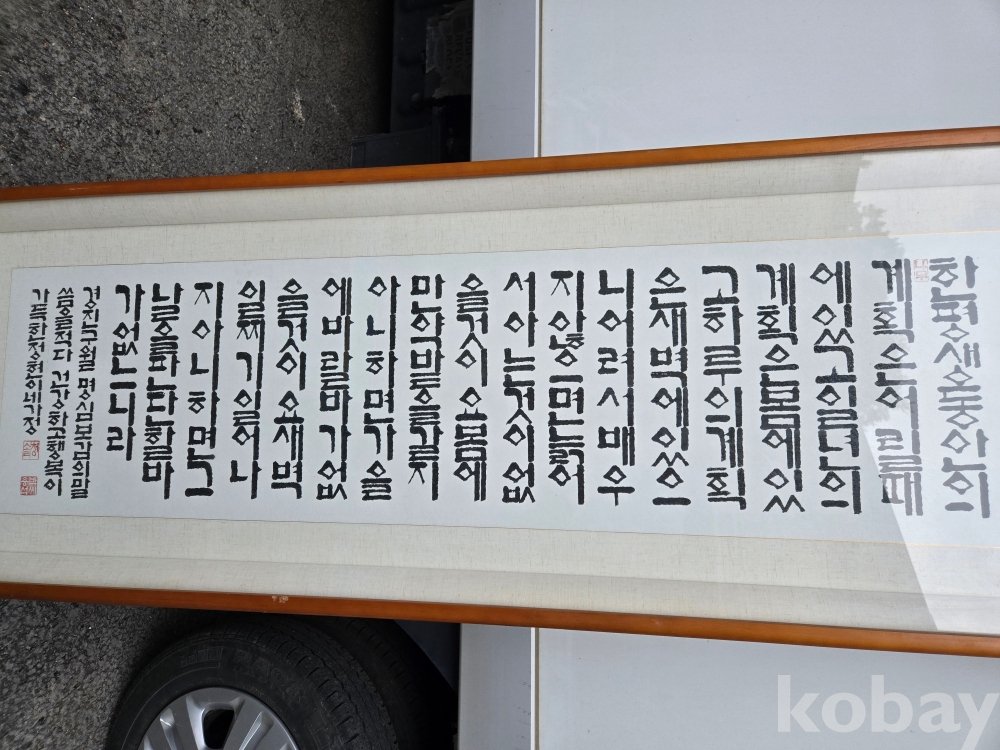 한평생동안의
계획은어릴때
에있고일년의
계획은봄에있
고하루의계획
은새벽에있으
니어려서배우
지않으면늙어
서아는것이없
을것이요봄에
만약밭을갈지
아니하면가을
에바랄바가없
을것이요새벽
일찍이일어나
지아니하면그
날을판단할바
가없느니라
경진구월 명심보감의말
씀을적다 건강하고행복이
가득한정현이네가정
kobay